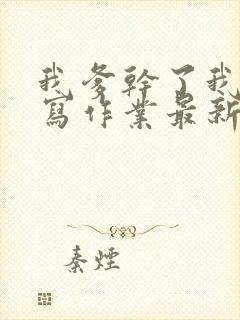 我爹幹了我
寫作業最新
秦煙